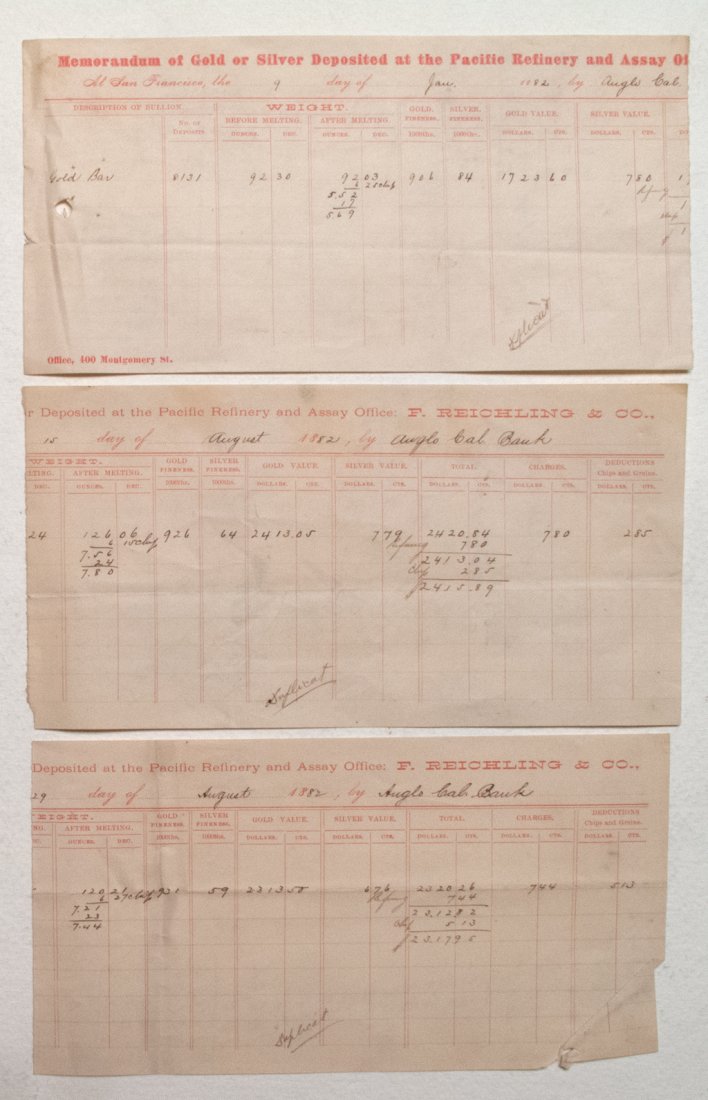 Memorandum of Gold or Silver Deposited at the Pacific Refinery and Assay Of
At San Francisco, the 9 day of Jan. 1882, by Anglo Cal.
DESCRIPTION OF BULLION. No. of Deposits WEIGHT. GOLD. SILVER. GOLD VALUE. SILVER VALUE.
BEFORE MELTING. AFTER MELTING. FINENESS. FINENESS.
OUNCES. DEC. OUNCES. DEC. 1000ths. 1000ths. DOLLARS. CTS. DOLLARS. CTS. DO
Gold Bar 8131 92 30 92 03 906 84 1723 60 7 80 1
6 25 Chip
5.52
17
5.69
Duplicat
Office, 400 Montgomery St.
r Deposited at the Pacific Refinery and Assay Office: F. REICHLING & CO.,
15 day of August 1882, by Anglo Cal Bank
WEIGHT. GOLD SILVER GOLD VALUE SILVER VALUE. TOTAL. CHARGES. DEDUCTIONS
LTING. AFTER MELTING. FINENESS. FINENESS. Chips and Grains.
DEC. OUNCES. DEC. 1000ths. 1000ths. DOLLARS. CTS. DOLLARS. CTS. DOLLARS. CTS. DOLLARS. CTS. DOLLARS. CTS.
24 126 06 926 64 2413.05 7 79 2420.84 7 80 2 85
6 15 Chip Refining 7 80
7.56 2413.04
24 Chip 2 85
7.80 2415.89
Duplicat
Deposited at the Pacific Refinery and Assay Office: F. REICHLING & CO.,
29 day of August 1882, by Anglo Cal. Bank
WEIGHT. GOLD SILVER GOLD VALUE. SILVER VALUE. TOTAL. CHARGES. DEDUCTIONS
NG. AFTER MELTING. FINENESS. FINENESS. Chips and Grains.
DEC. OUNCES. DEC. 1000ths. 1000ths. DOLLARS. CTS. DOLLARS. CTS. DOLLARS. CTS. DOLLARS. CTS. DOLLARS. CTS.
120 21 931 59 2313.50 6 76 2320 26 7 44 5 13
6 27 Chip Refining 7 44
7.21 2312 82
23 Chip 5 13
7.44 2317 95
Duplicat